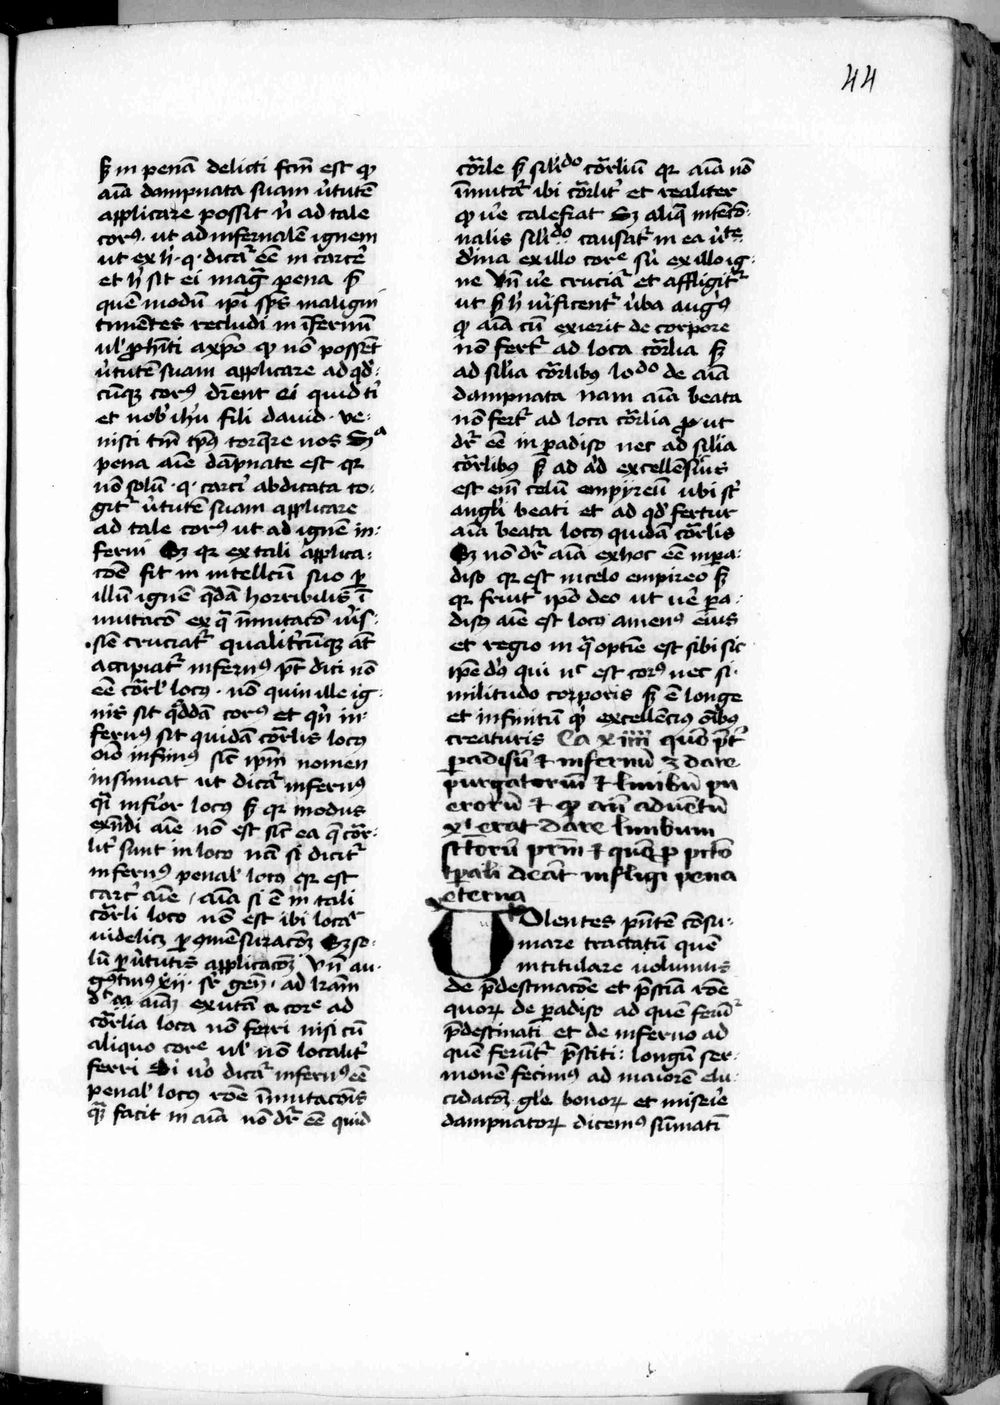 44
sʒ in penā delicti fcīn est qp
aīa dampnata suam v̓tutē
applicare possit n̄ ad tale
corꝰ. ut ad infernalē ignem
ut ex h̓. q. dicat᷑ eē in carce᷑
et h̓ sit ei mag᷑ pena sʒ
quē modū ip̄i sp̄s maligni
timētes recludi in īfernū
ul̓ ꝓhīti a xp̄o qp nō possēt
v̓tutē suam applicare ad qd̓-
cūqꝫ corꝰ dr̄ent ei quid ti᷑
et nob̓ ih̓u fili david. ve-
nisti tm̄ tp̄ꝰ torq̄re nos Sꝫ
pena aīe dāpnate est qꝛ
nō solū. q. carci᷑ abdicata co-
git᷑ v̓tutē suam applicare
ad tale corꝰ ut ad ignē in-
ferni Sꝫ qꝛ ex tali applica-
cōe fit in intellcū suo ꝑ
illū ignē q̄dā horribilis ī
mutacō ex q̄ īmutacō vīs-
siē cruciat᷑ qualit᷑cūqꝫ at̄
accipiat᷑ infernꝰ pt̄ dici nō
eē cōrl̓ locꝰ. nō quin ille ig-
nis sit q̄ddā corꝰ et qn̄ in-
fernꝰ sit quidā cōrlis locꝰ
oīo infimꝰ sic̄ ip̄m nomen
insinuat ut dicat᷑ infernꝰ
q̄i infīor locꝰ sʒ qꝛ modus
exn̄di aīe nō est sic̄ ea q̄ cōr-
lit᷑ sunt in loco nā si dicit᷑
infernꝰ penal̓ locꝰ qꝛ est
carc᷑ aīe, aīa si ē in tali
cōrli loco nō est ibi local̓
videlicꝫ ꝑ 9mēsuracōꝫ Sꝫ so-
lū ꝑ v̓tutis applicacōꝫ Vn̄ au-
gꝰtinꝰ xij. sr̄ gen̄. ad lr̄am
aīaꝫ exutā a core ad
cōrlia loca nō ferri nisi cū
aliquo core ul̓ nō localit᷑
ferri Si v̓o dicat᷑ infernꝰ eē
penal̓ locꝰ rōe īmutacōis
quā facit in aīa nō dr̄ eē quid
cōrale sʒ sil̓ido cōrliū qꝛ aīa nō
īmutat᷑ ibi cōrlit᷑ et realiter
qp v̓e calefiat Sꝫ aliq̄ intēcō-
nalis sil̓ido causat᷑ in ea v̓te
dīna ex illo core sn̄ ex illo ig-
ne Vn̄ v̓e cruciat᷑ et affligit᷑
ut sʒ h̓ v̓ificent᷑ v̓ba augꝰ
qp aīa cū exierit de corpore
nō fert᷑ ad loca cōrlia sʒ
ad sil̓ia cōrlibꝰ lodo de aīa
dampnata nam aīa beata
nō fert᷑ ad loca cōrlia ꝓ ut
dr̄ eē in ꝑadiso nec ad silia
cōrlibꝰ sʒ ad id excellēsius
est em̄ celū empireū ubi st̄
angl̓i beati et ad qd̓ fertur
aīa beata locꝰ quidā cōrlis
Sꝫ nō dr̄ aīa ex hoc eē in ꝑa-
diso qꝛ est in celo empireo sʒ
qꝛ fruit᷑ ip̄o deo ut v̓e ꝑa-
disꝰ aīe est locꝰ amenꝰ eius
et regio in q̄ optīe est sibi sic
ip̄e dꝰ qui nec est corꝰ nec si-
militudo corporis sʒ ē longe
et infinitū qp excellēciꝰ oībꝰ
creaturis Ca xiiii quō p̄t᷑
ꝑadisū ⁊ infernū ʒ dare
purgatoriū ⁊ limbū pu
erorū ⁊ qp an̄ aduentū
xp̄i erat dare limbum
sc̄torū pr̄m ⁊ quō ꝓ pctō
tp̄ali deāt infligi pena
eterna
Volentes pn̄tē cōsu-
mare tractatū quē
intitulare volumus
de p̄destinacōe et p̄sciā rōe
quoꝝ de paradiso ad quē ferūt᷑
p̄destinati et de inferno ad
quē ferūt᷑ p̄sciti: longū ser-
monē fecimꝰ ad maiorē elu-
cidacōꝫ gl̓e bonoꝝ et mis̓ie
dampnatoꝝ dicemꝰ sūmati